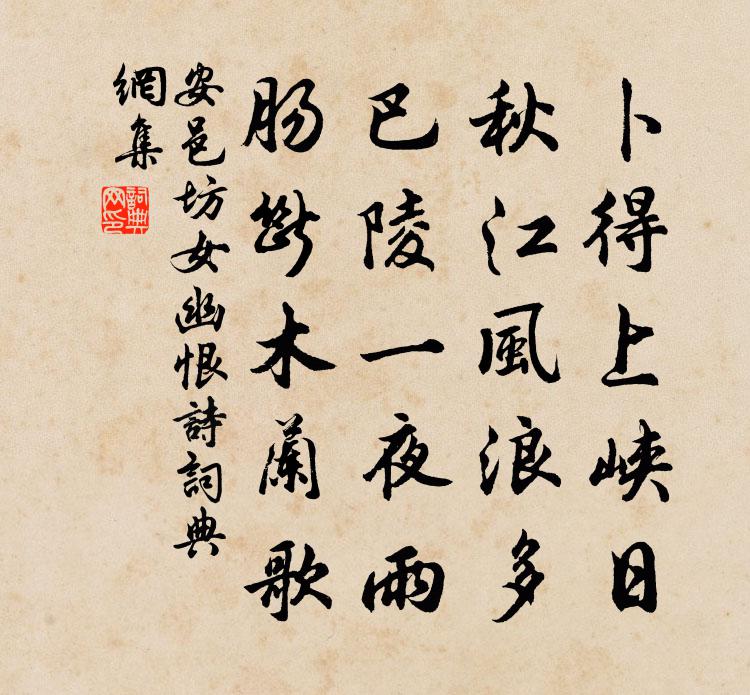 卜得上峽日
秋江風浪多
巴陵一夜雨
腸斷木蘭歌
安邑坊女幽恨詩詞典
網集
詞典
网印